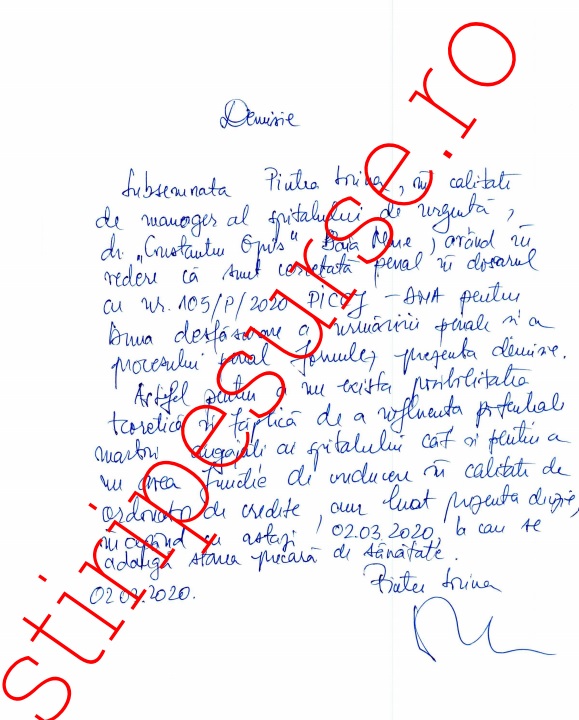 Demisie
Subsemnata Pintea Sorina, în calitate
de manager al spitalului de urgență,
dr. „Constantin Opriș" Baia Mare, având în
vedere că sunt cercetată penal în dosarul
cu nr. 105/P/2020 PICCJ - DNA pentru
buna desfășurare a urmăririi penale și a
procesului penal formulez prezenta demisie.
Astfel pentru a nu exista posibilitatea
teoretică și faptică de a influența potențiali
martori angajați ai spitalului cât și pentru a
nu avea funcție de conducere în calitate de
ordonator de credite, am luat prezenta decizie,
începând cu astăzi, 02.03.2020, la care se
adaugă starea precară de sănătate.
Pintea Sorina
02.03.2020.
stiripesurse.ro